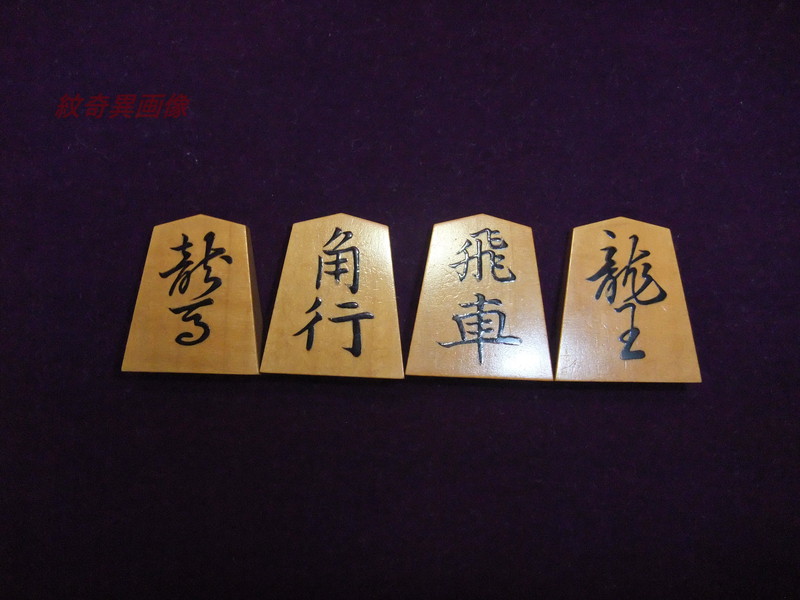 紋奇異画像
龍馬
角行
飛車
龍王